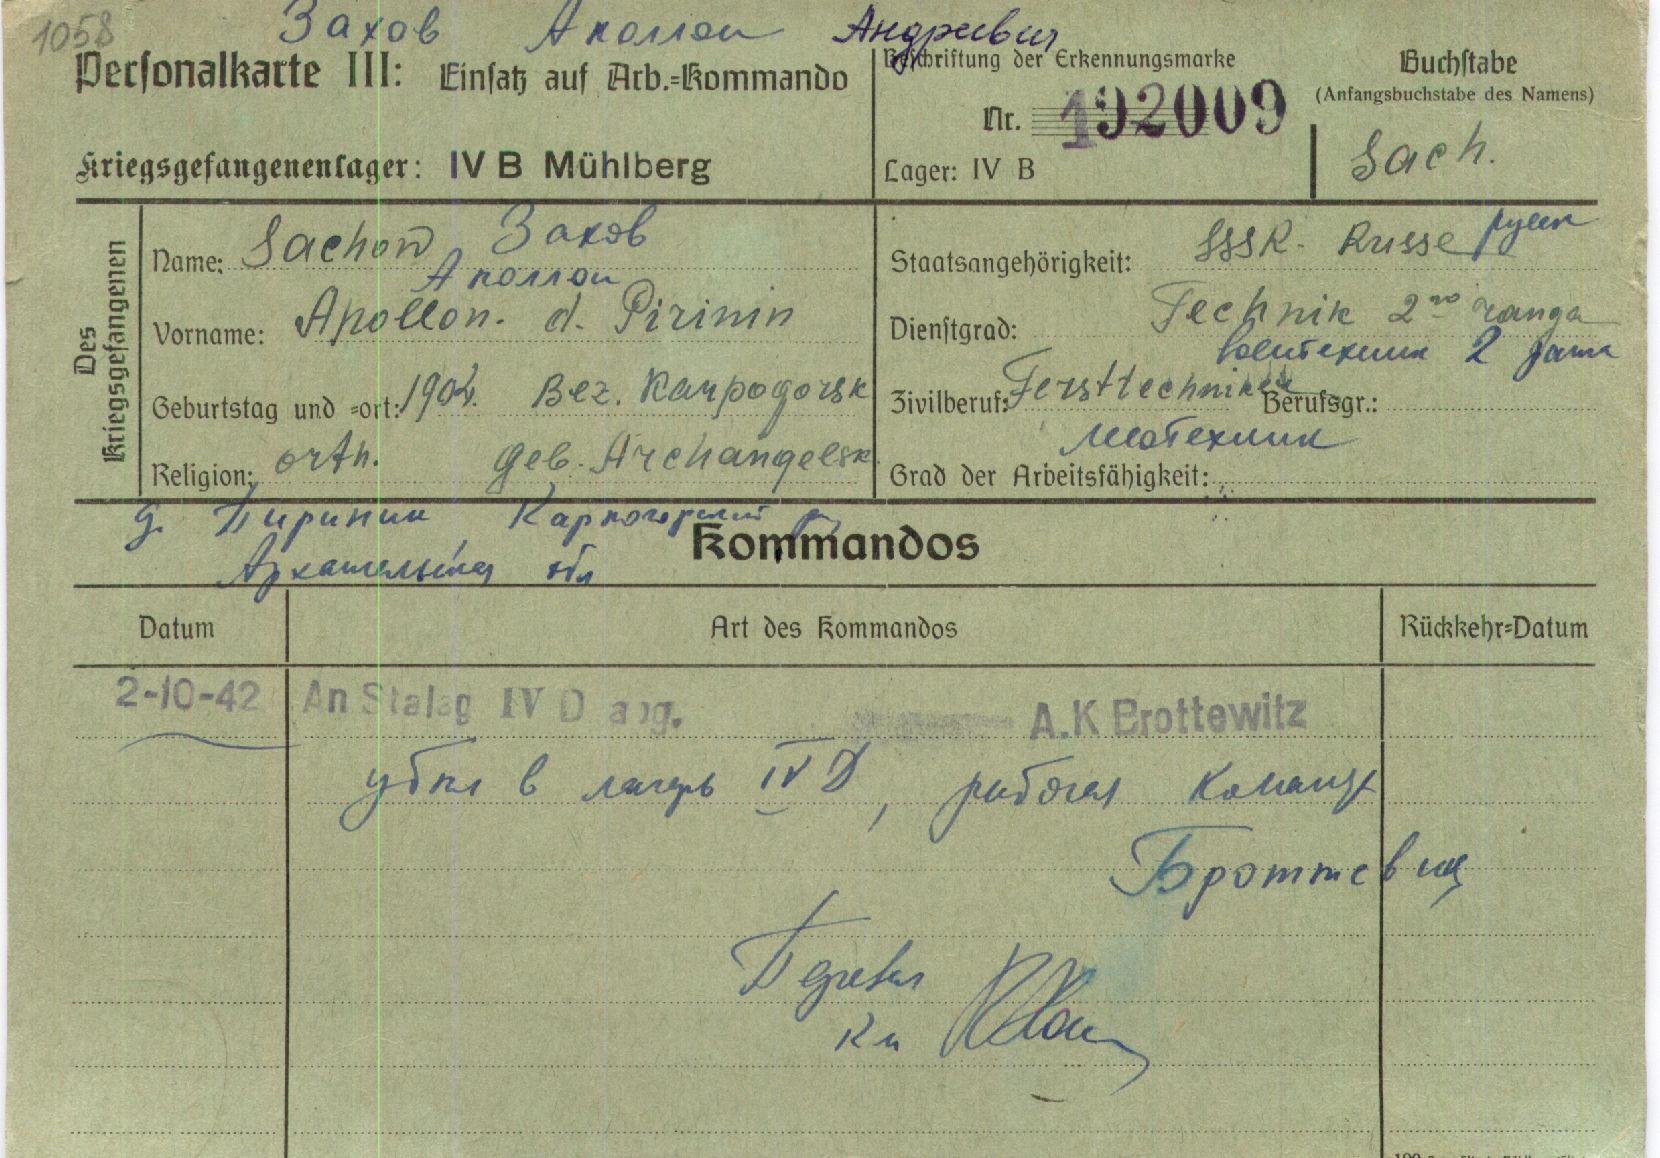 1058 Захов Аполлон Андреевич
Personalkarte III: Einsatz auf Arb.=Kommando
Beschriftung der Erkennungsmarke
Nr. 192009
Lager: IV B
Buchstabe
(Anfangsbuchstabe des Namens)
Sach.
Kriegsgefangenenlager: IV B Mühlberg
Des Kriegsgefangenen
Name: Sachow Захов
Аполлон
Vorname: Apollon. d. Pirinin
Geburtstag und =ort: 1904. Bez. Karpogorsk
Religion: orth. geb. Archangelsk
Staatsangehörigkeit: SSSR. Russe русск
Dienstgrad: Technik 2го ranga
Воентехник 2 ранга
Zivilberuf: Forsttechniker Berufsgr.:
Grad der Arbeitsfähigkeit:
д. Пиринин Карпогорский р
Архангельская обл
Kommandos
Datum
Art des Kommandos
Rückkehr=Datum
2-10-42 An Stalag IV D abg. A.K Brottewitz
убыл в лагерь IV D, рабочая команда
Броттевиц
Перевел